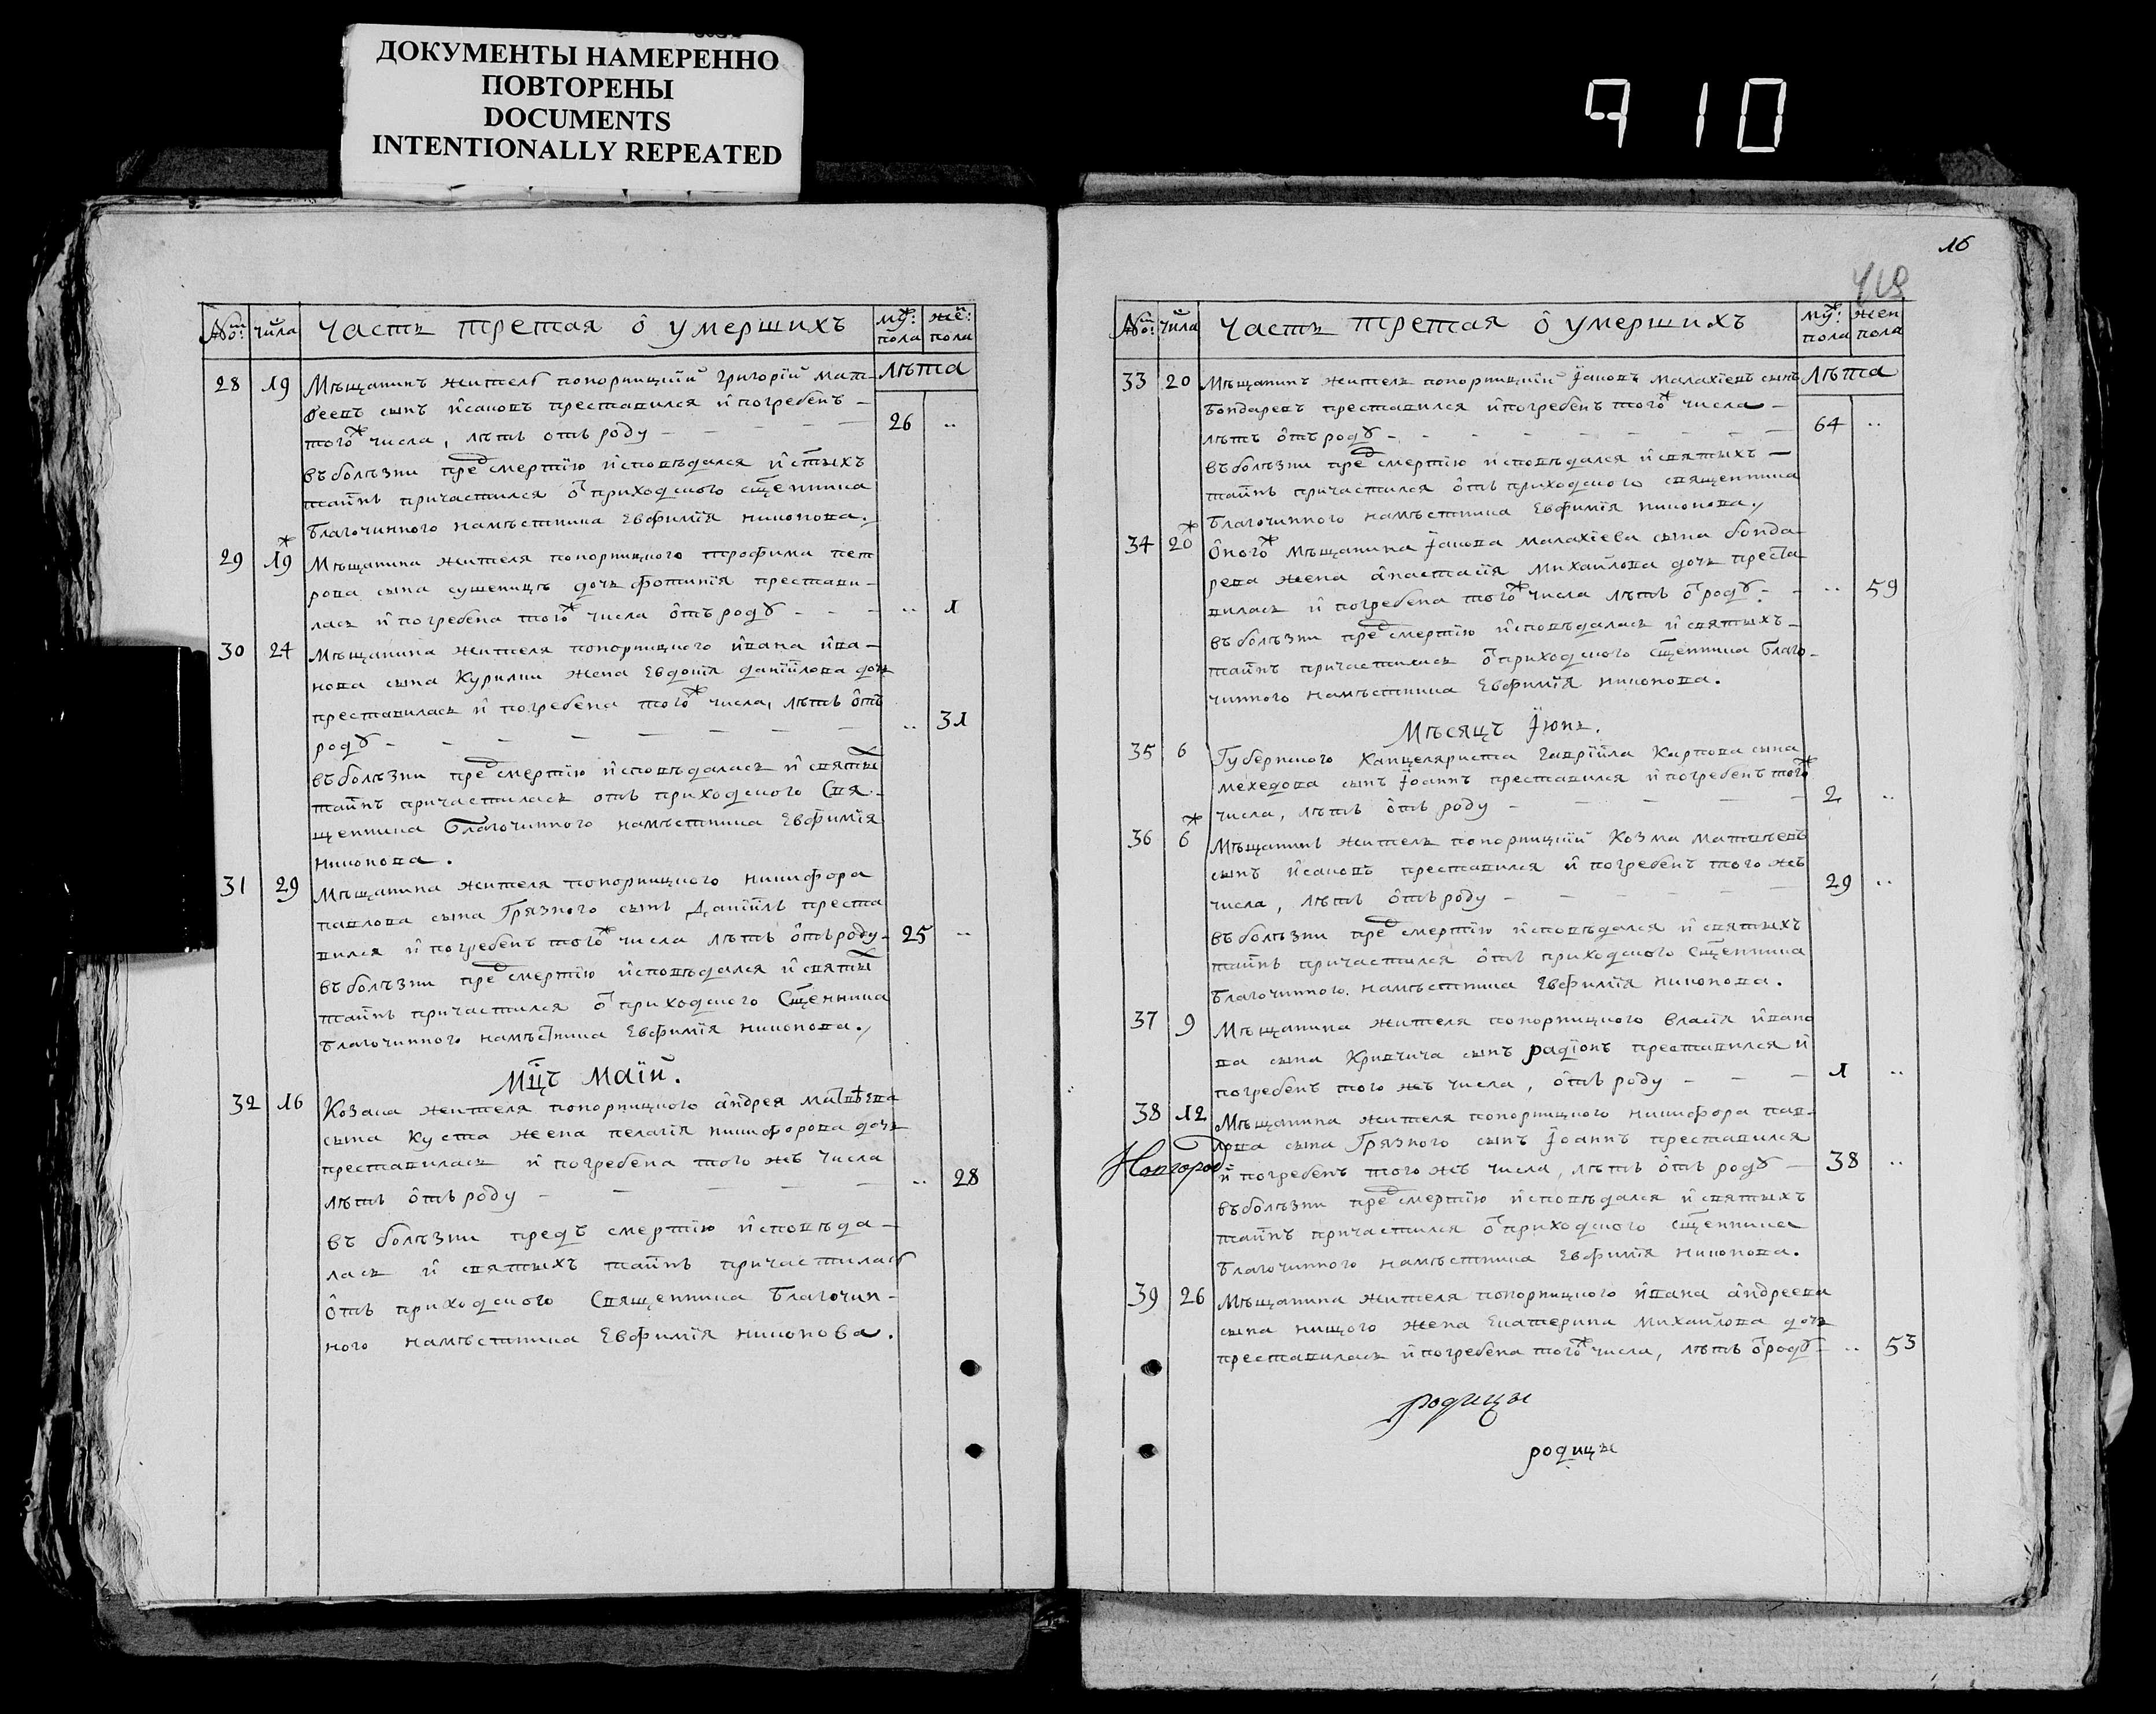 ДОКУМЕНТЫ НАМЕРЕННО
ПОВТОРЕНЫ
DOCUMENTS
INTENTIONALLY REPEATED
910
№ числа Часть третая о умершихъ муж: пола жен: пола
лѣта
28 19 Мѣщанинъ житель понорницкiй григорiй мат-
ѳеевъ сынъ исаковъ преставился и погребенъ -
тогож числа, лѣтъ отъ роду - 26 ..
въ болѣзни пред смертiю исповѣдался и стыхъ
таинъ причастился от приходского сщенника
благочинного намѣстника Евфимiя никонова.
29 19 Мѣщанина жителя понорницкого трофима пет
рова сына сушеницъ дочь фотинiя престави-
лась и погребена тогож числа отъ роду - - - .. 1
30 24 Мѣщанина жителя понорницкого ивана ива-
нова сына Курилки жена Евдокiя данiилова дочь
преставилась и погребена тогож числа, лѣтъ отъ
роду - .. 31
въ болѣзни пред смертiю исповѣдалась и святых
таинъ причастилась отъ приходского Свя-
щенника благочинного намѣстника Евфимiя
никонова.
31 29 Мѣщанина жителя понорницкого никифора
павлова сына Грязного сынъ Данiилъ преста
вился и погребенъ тогож числа лѣтъ отъ роду - 25 ..
въ болѣзни пред смертiю исповѣдался и святых
таинъ причастился от приходского Сщенника
благочинного намѣстника Евфимiя никонова.
Мцъ Маiй.
32 16 Козака жителя понорницкого андрея матвѣева
сына Куста жена пелагiя никифорова дочь
преставилась и погребена того жъ числа
лѣтъ отъ роду - .. 28
въ болѣзни предъ смертiю исповѣда-
лась и святыхъ таинъ причастилась
отъ приходского Священника благочин-
ного намѣстника Евфимiя никонова.
16
418
№ числа Часть третая о умершихъ муж: пола жен пола
лѣта
33 20 Мѣщанинъ житель понорницкiй iаковъ малахiевъ сынъ
бондаревъ преставился и погребенъ тогож числа -
лѣтъ отъ роду - 64 ..
въ болѣзни пред смертiю исповѣдался и святыхъ -
таинъ причастился отъ приходского священника
благочинного намѣстника Евфимiя никонова.
34 20 Оногож мѣщанина iакова малахiева сына бонда
рева жена анастасiя михайлова дочь преста
вилась и погребена тогож числа лѣтъ от роду - .. 59
въ болѣзни пред смертiю исповѣдалась и святыхъ -
таинъ причастилась от приходского сщенника благо-
чинного намѣстника Евфимiя никонова.
Мѣсяцъ Iюнь.
35 6 Губернского Канцеляриста гаврiила Карпова сына
мехедова сынъ iоаннъ преставился и погребенъ тогож
числа, лѣтъ отъ роду - 2 ..
36 6 Мѣщанинъ житель понорницкiй Козма матвѣевъ
сынъ исаковъ преставился и погребенъ того жъ
числа, лѣтъ отъ роду - 29 ..
въ болѣзни пред смертiю исповѣдался и святыхъ
таинъ причастился отъ приходского Сщенника
благочинного намѣстника Евфимiя никонова.
37 9 Мѣщанина жителя понорницкого власiя ивано
ва сына Кривчича сынъ радiонъ преставился и
погребенъ того жъ числа, отъ роду - - - 1 ..
38 12 Мѣщанина жителя понорницкого никифора пав-
лова сына Грязного сынъ iоаннъ преставился
Новгород и погребенъ того жъ числа, лѣтъ отъ роду - 38 ..
въ болѣзни пред смертiю исповѣдался и святыхъ
таинъ причастился от приходского сщенника
благочинного намѣстника Евфимiя никонова.
39 26 Мѣщанина жителя понорницкого ивана андреева
сына нищого жена Екатерина михайлова дочь
преставилась и погребена тогож числа, лѣтъ от роду - .. 53
родицы
родицы